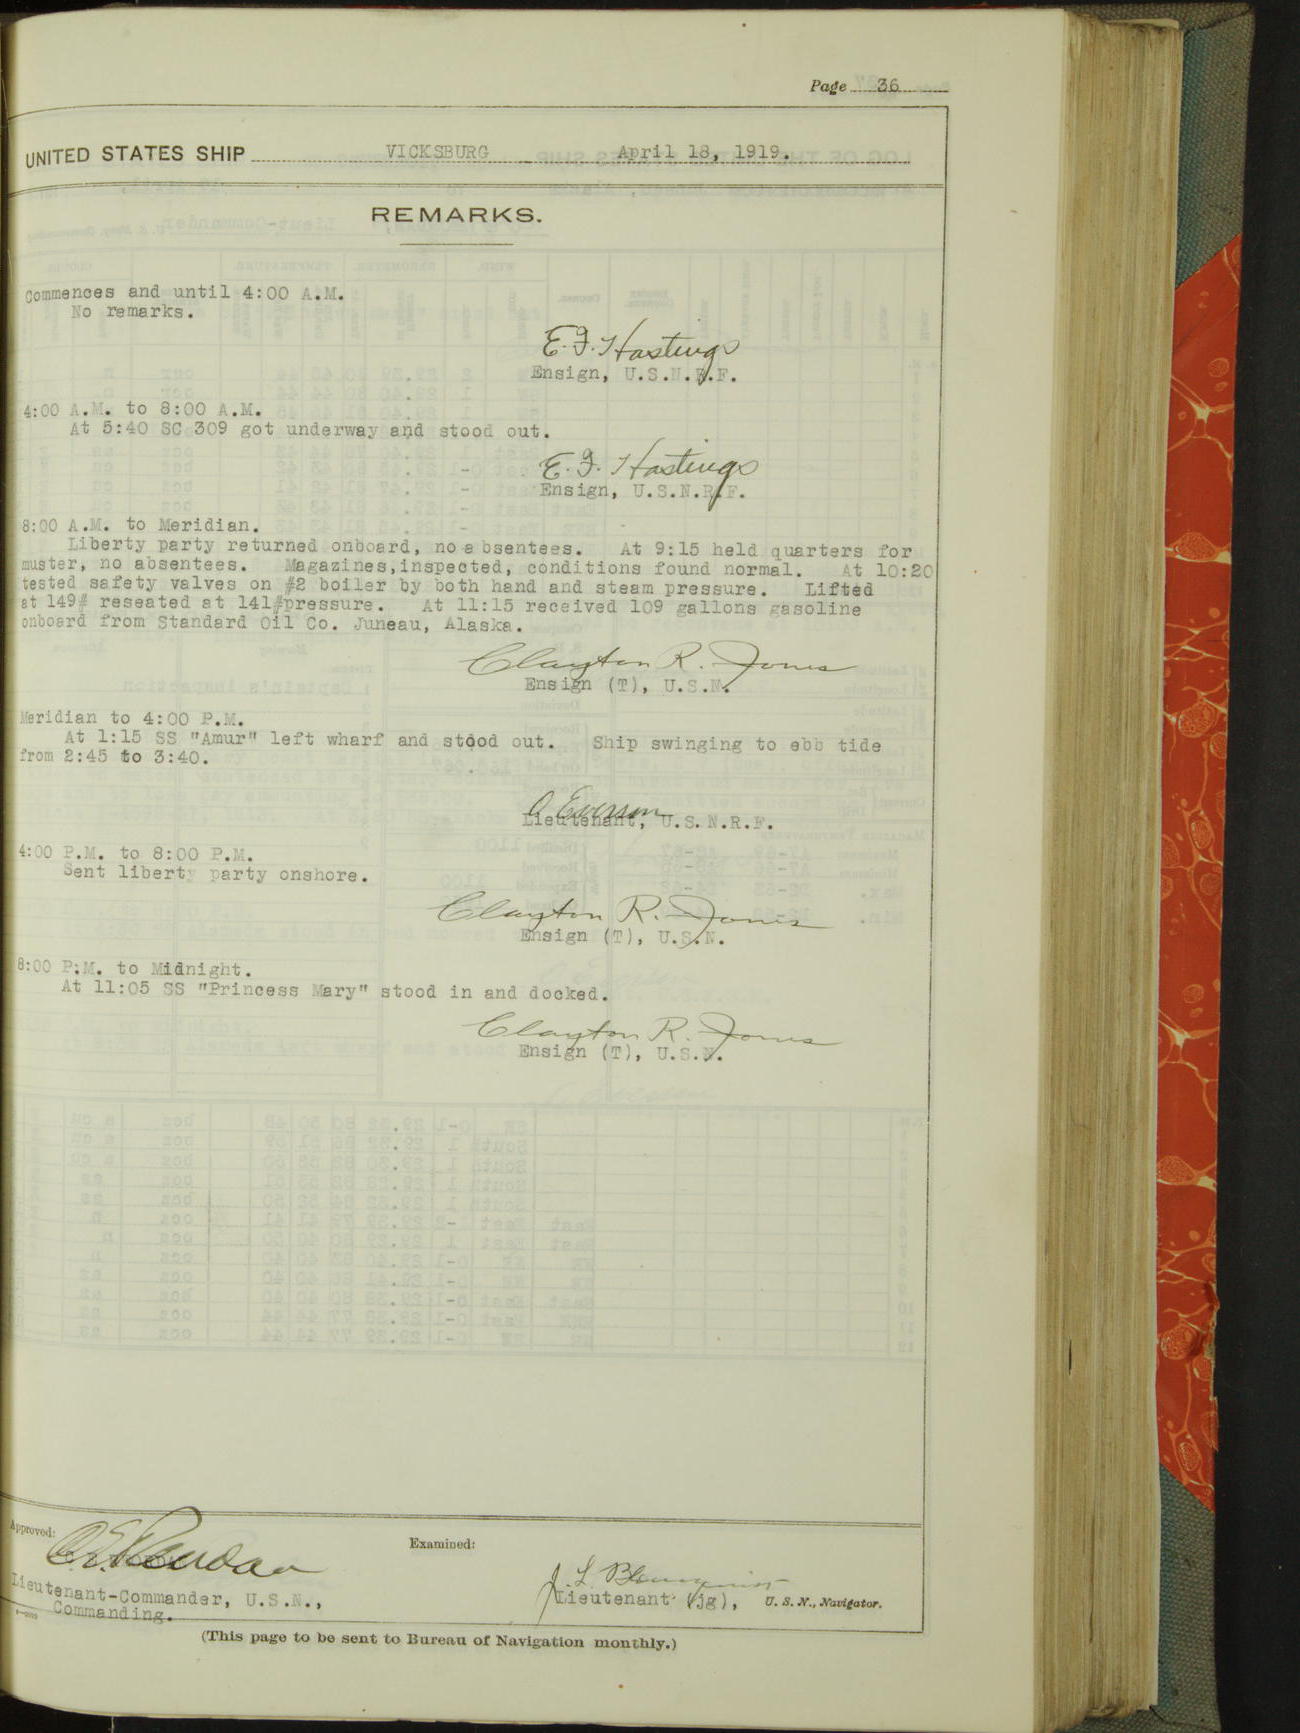 Page 36
UNITED STATES SHIP VICKSBURG April 18, 1919.
REMARKS.
Commences and until 4:00 A.M.
No remarks.
E. F. Hastings
Ensign, U.S.N.R.F.
4:00 A.M. to 8:00 A.M.
At 5:40 SC 309 got underway and stood out.
E. F. Hastings
Ensign, U.S.N.R.F.
8:00 A.M. to Meridian.
Liberty party returned onboard, no absentees. At 9:15 held quarters for
muster, no absentees. Magazines,inspected, conditions found normal. At 10:20
tested safety valves on #2 boiler by both hand and steam pressure. Lifted
at 149# reseated at 141#pressure. At 11:15 received 109 gallons gasoline
onboard from Standard Oil Co. Juneau, Alaska.
Clayton R. Jones
Ensign (T), U.S.N.
Meridian to 4:00 P.M.
At 1:15 SS "Amur" left wharf and stood out. Ship swinging to ebb tide
from 2:45 to 3:40.
Lieutenant, U.S.N.R.F.
4:00 P.M. to 8:00 P.M.
Sent liberty party onshore.
Clayton R. Jones
Ensign (T), U.S.N.
8:00 P.M. to Midnight.
At 11:05 SS "Princess Mary" stood in and docked.
Clayton R. Jones
Ensign (T), U.S.N.
Approved:
Lieutenant-Commander, U.S.N.,
Commanding.
Examined:
J. L.
Lieutenant (jg), U. S. N., Navigator.
(This page to be sent to Bureau of Navigation monthly.)